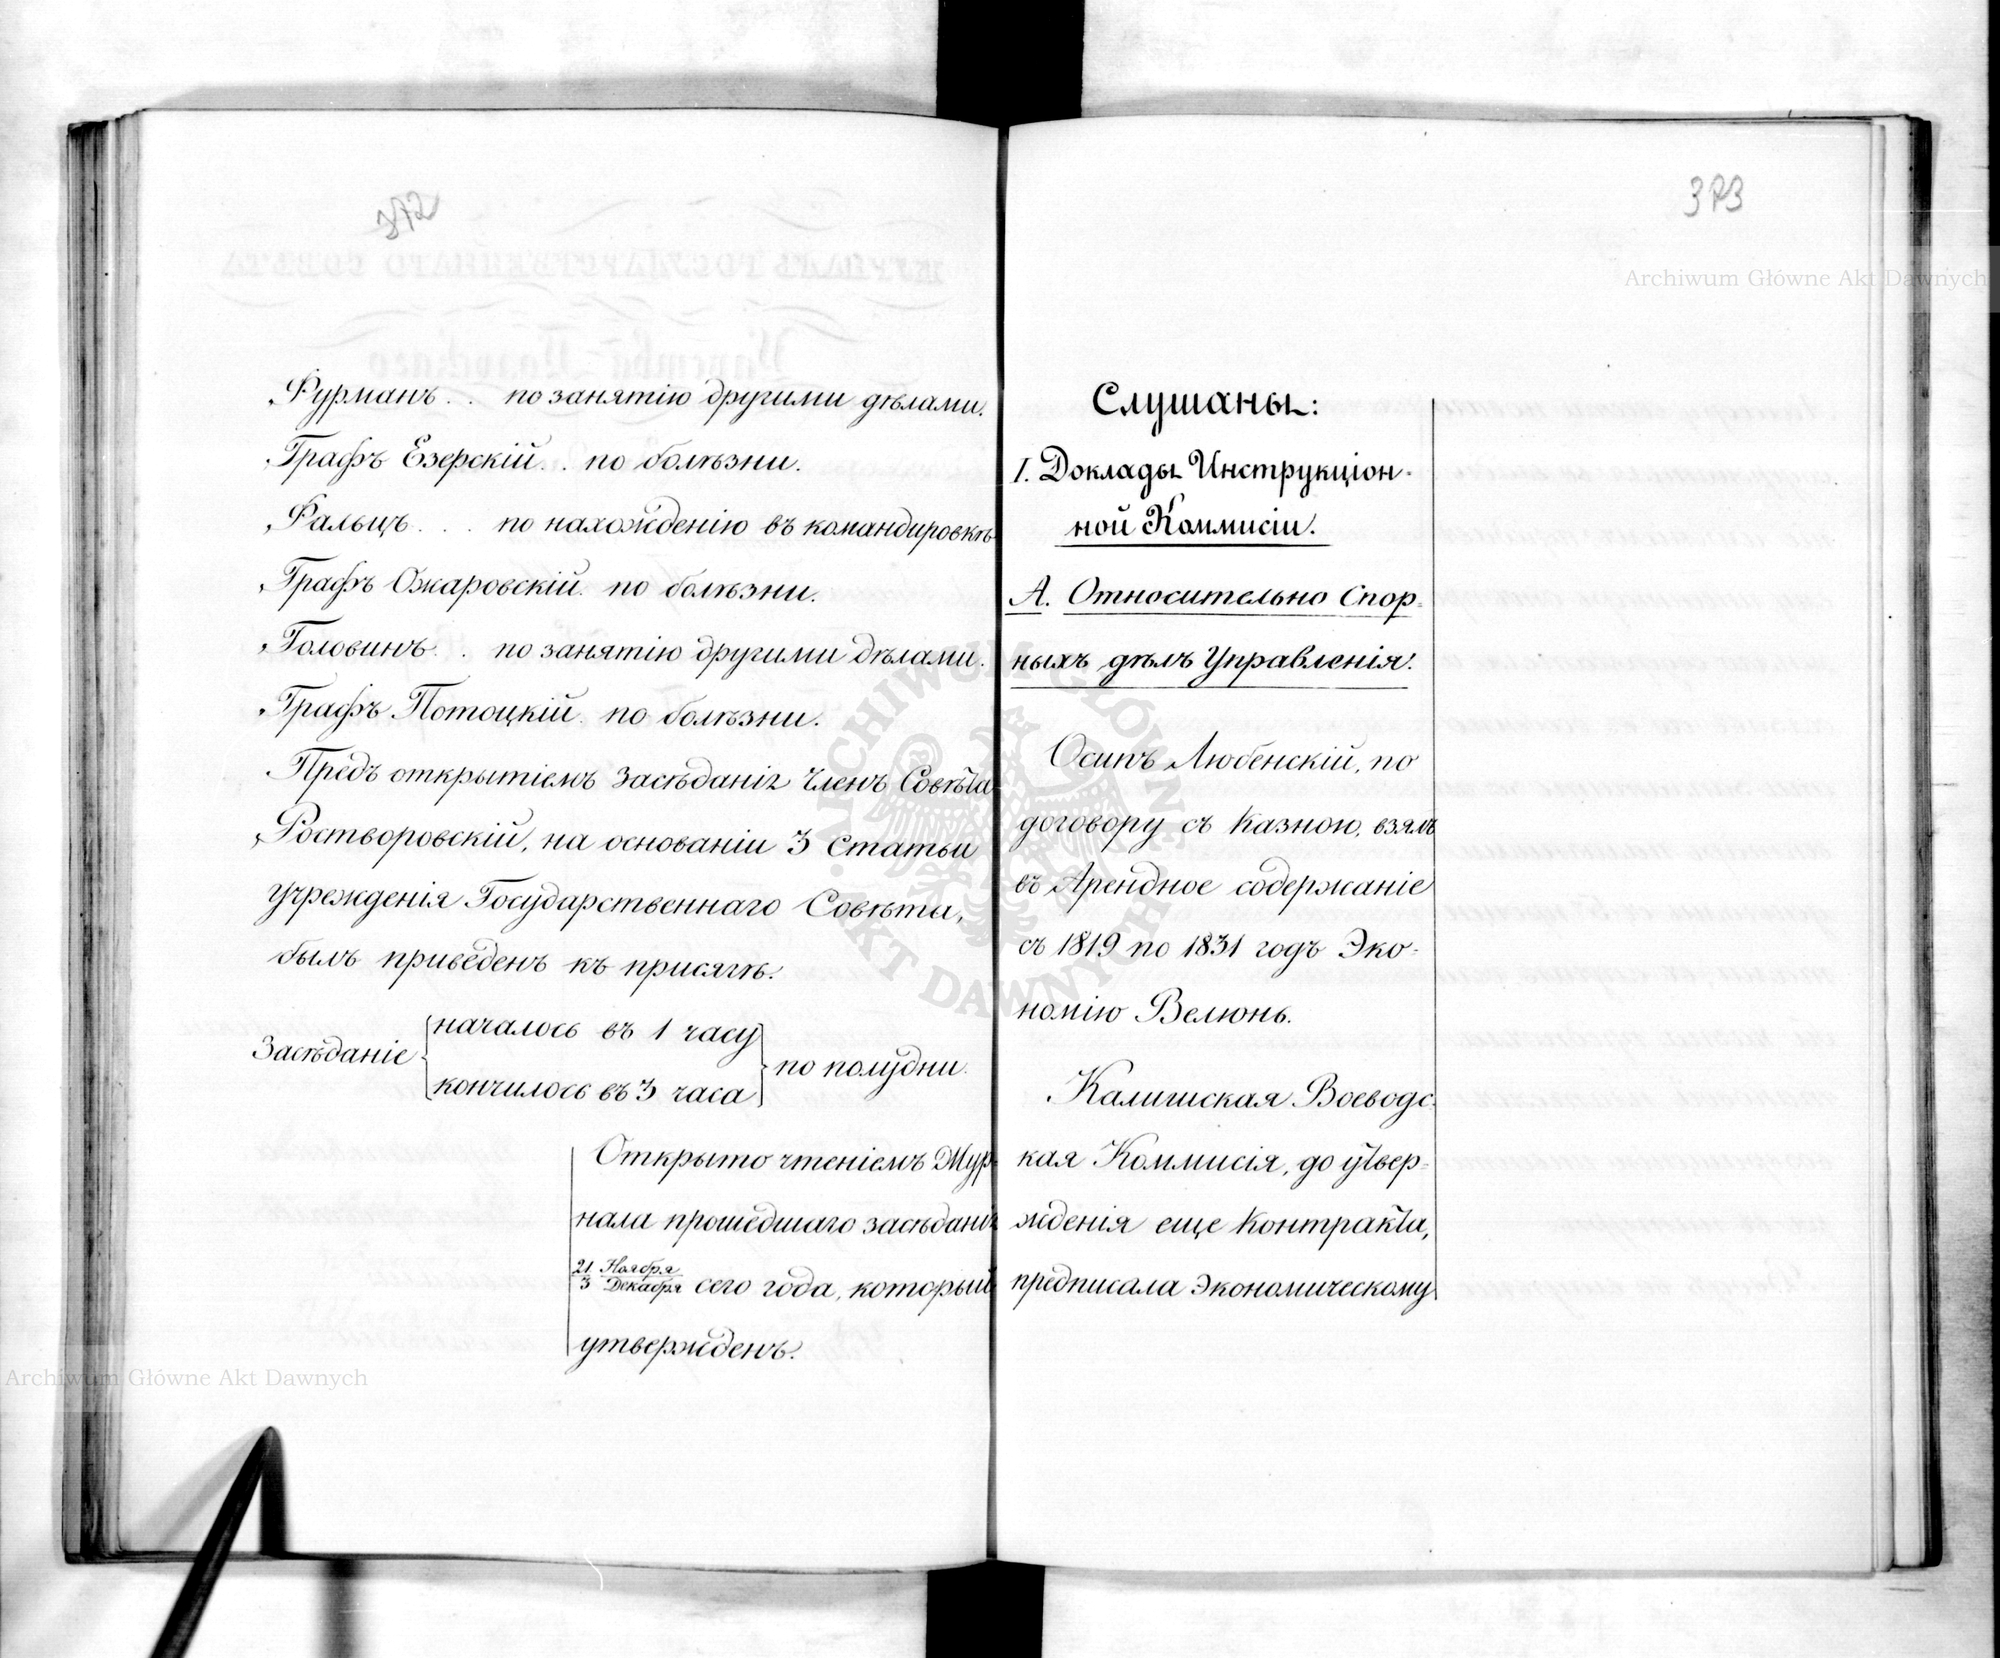 372
Фурманъ . . по занятію другими дѣлами.
Графъ Езерскій . . по болѣзни.
Фальцъ . . . по нахожденію въ командировкѣ
Графъ Ожаровскій . по болѣзни.
Головинъ . . по занятію другими дѣлами.
Графъ Потоцкій . по болѣзни.
Предъ открытіемъ Засѣданія Членъ Совѣта
Ростворовскій, на основаніи 3 Статьи
учрежденія Государственнаго Совѣта,
былъ приведенъ къ присягѣ.
Засѣданіе { началось въ 1 часу
кончилось въ 3 часа } по полудни.
Открыто чтеніемъ Жур-
нала прошедшаго засѣданія
21 Ноября / 3 Декабря сего года, который
утвержденъ.
373
Слушаны:
I. Доклады Инструкціон-
ной Коммисіи.
А. Относительно Спор-
ныхъ дѣлъ Управленія.
Осипъ Любенскій, по
договору съ Казною, взялъ
въ Арендное содержаніе
съ 1819 по 1831 годъ Эко-
номію Велюнь.
Калишская Воеводс-
кая Коммисія, до утвер-
жденія еще Контракта,
предписала Экономическому
Archiwum Główne Akt Dawnych
Archiwum Główne Akt Dawnych
ARCHIWUM GŁÓWNE AKT DAWNYCH